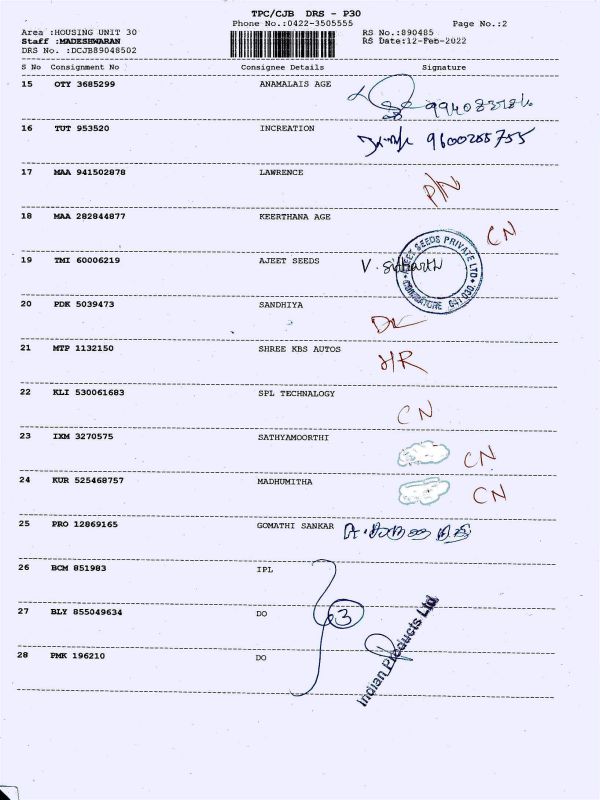 TPC/CJB DRS - P30
Phone No.:0422-3505555 Page No.:2
Area :HOUSING UNIT 30 RS No.:890485
Staff :MADESHWARAN RS Date:12-Feb-2022
DRS No. :DCJB89048502
S No Consignment No Consignee Details Signature
15 OTY 3685299 ANAMALAIS AGE
16 TUT 953520 INCREATION 9600255755
17 MAA 941502878 LAWRENCE P/N
18 MAA 282844877 KEERTHANA AGE CN
19 TMI 60006219 AJEET SEEDS V. Sidharth AJEET SEEDS PRIVATE LTD. COIMBATORE 641 030
20 PDK 5039473 SANDHIYA DL
21 MTP 1132150 SHREE KBS AUTOS HR
22 KLI 530061683 SPL TECHNALOGY CN
23 IXM 3270575 SATHYAMOORTHI CN
24 KUR 525468757 MADHUMITHA CN
25 PRO 12869165 GOMATHI SANKAR
26 BCM 851983 IPL
27 BLY 855049634 DO 3
28 PMK 196210 DO
Indian Products Ltd